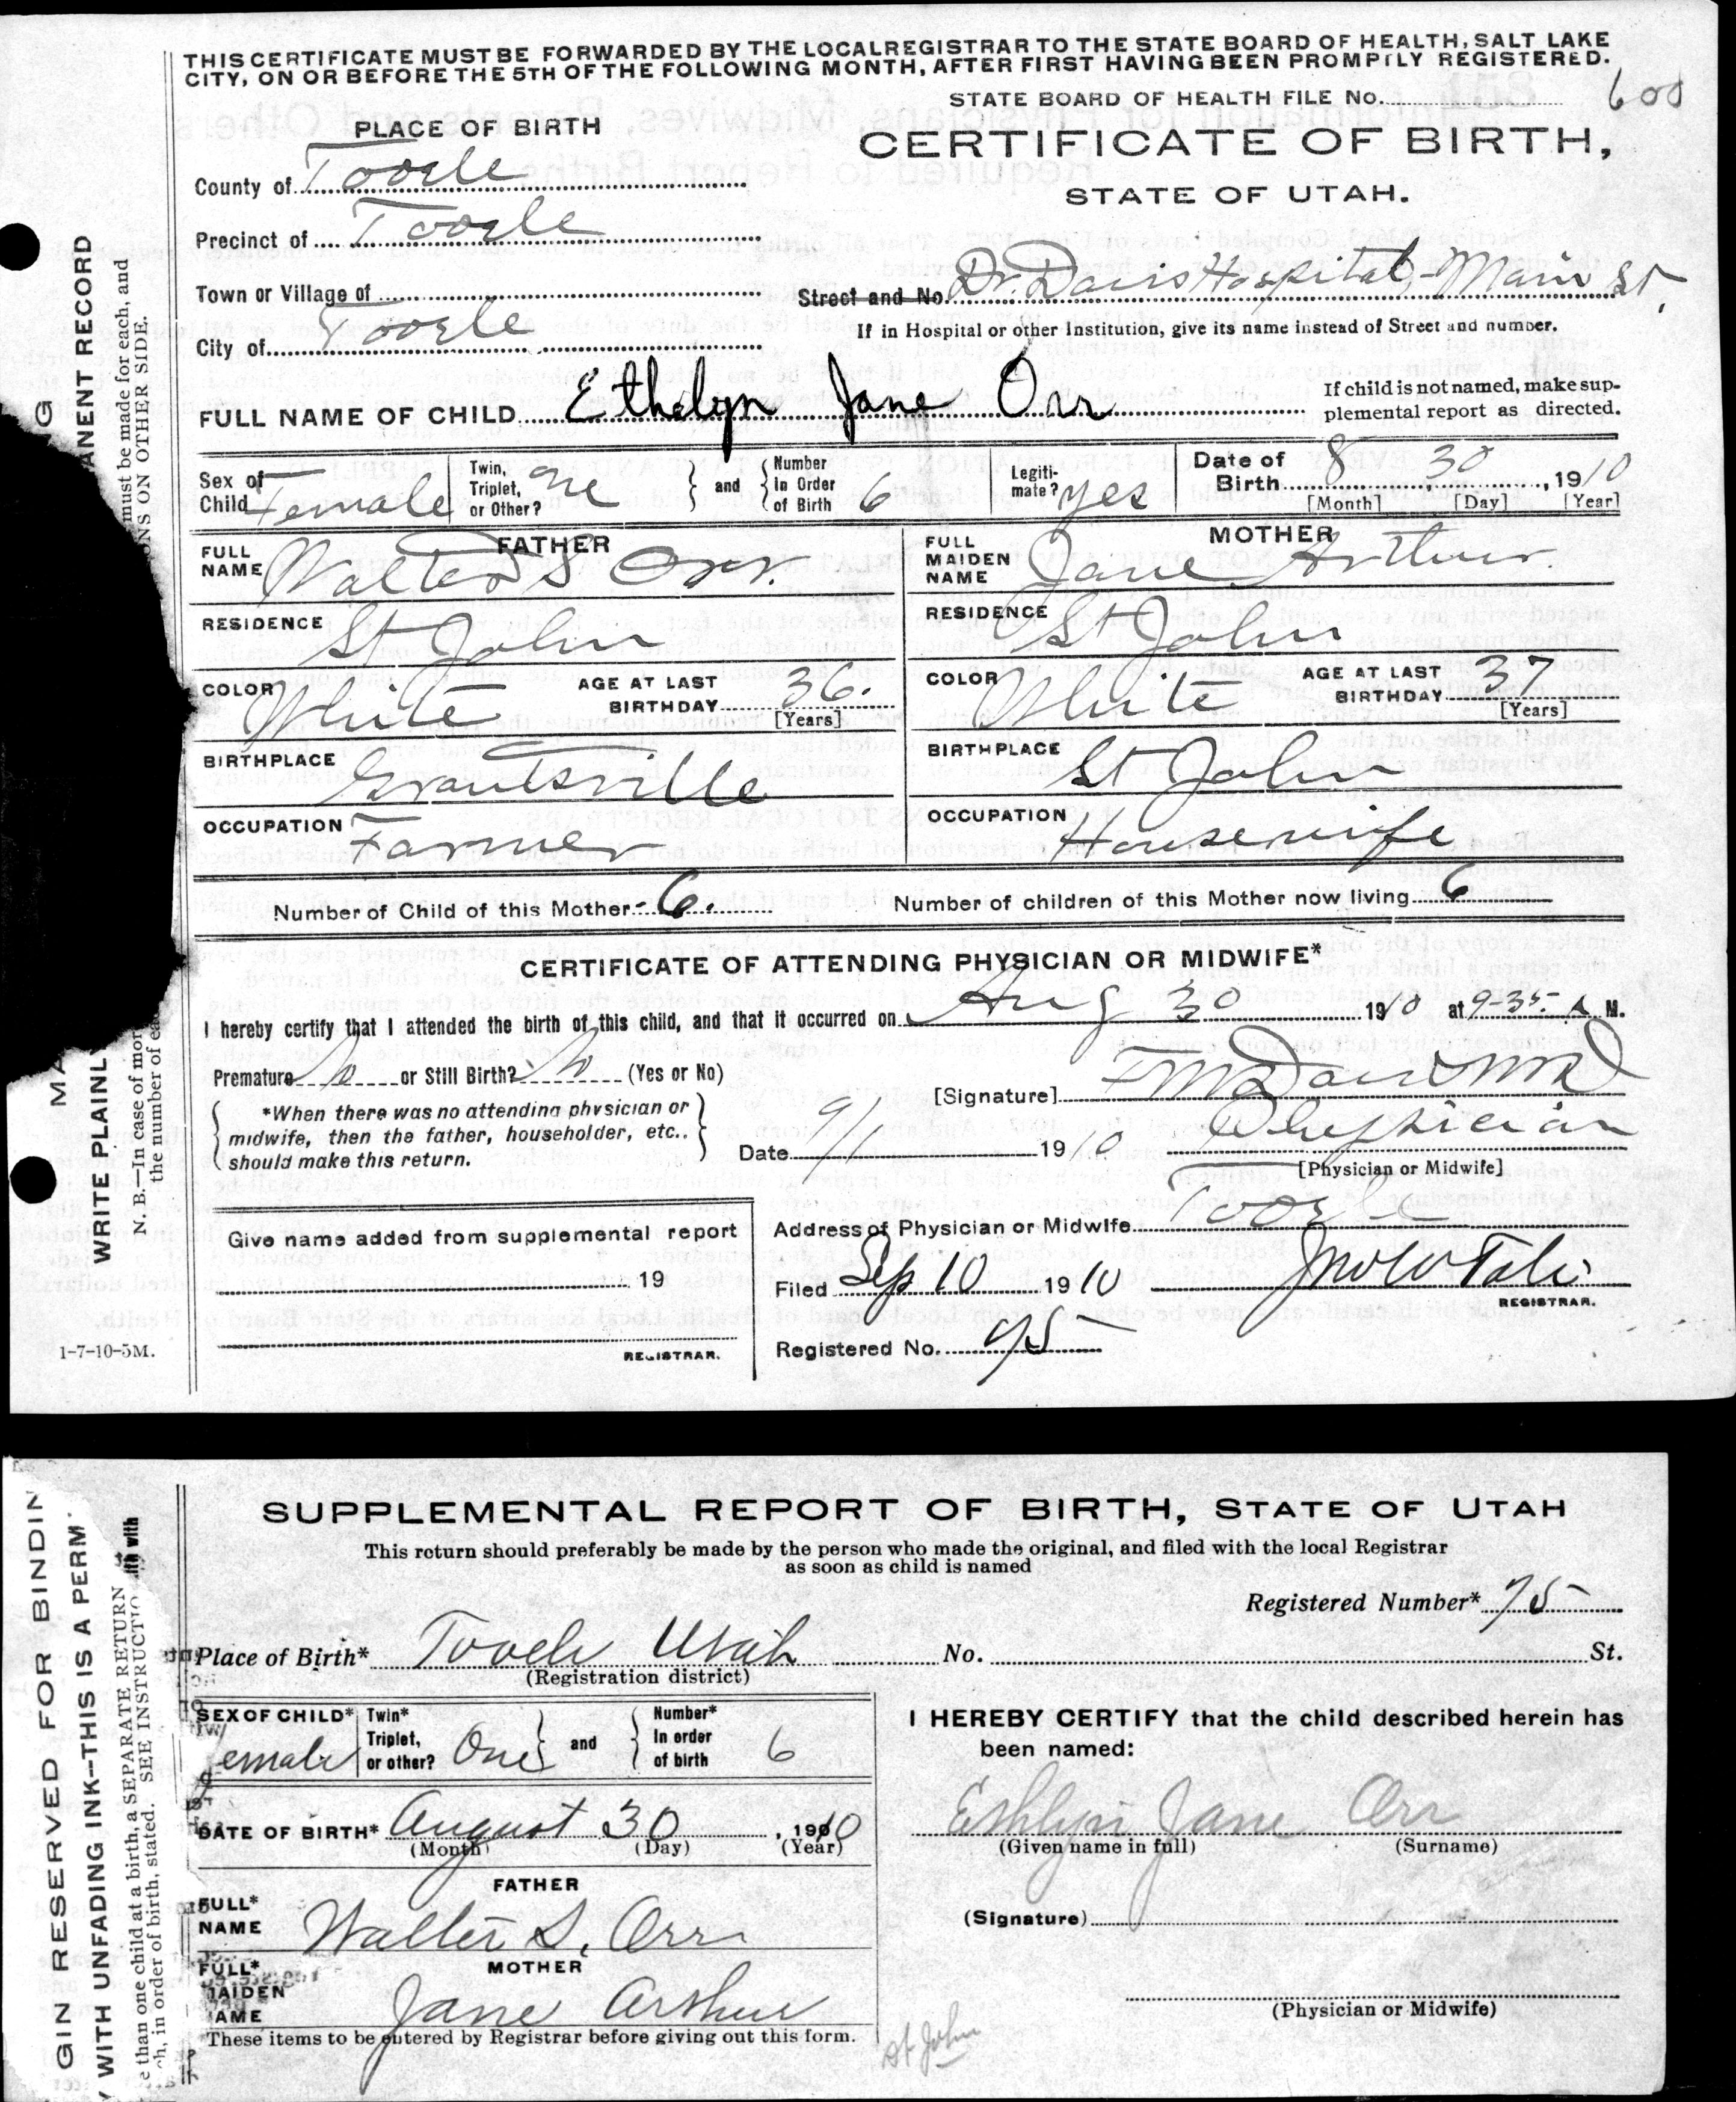 THIS CERTIFICATE MUST BE FORWARDED BY THE LOCAL REGISTRAR TO THE STATE BOARD OF HEALTH, SALT LAKE
CITY, ON OR BEFORE THE 5TH OF THE FOLLOWING MONTH, AFTER FIRST HAVING BEEN PROMPTLY REGISTERED.
STATE BOARD OF HEALTH FILE No. 600
PLACE OF BIRTH
CERTIFICATE OF BIRTH,
STATE OF UTAH.
County of Tooele
Precinct of Tooele
Town or Village of
Street and No. Dr. Davis Hospital, Main St.
City of Tooele
If in Hospital or other Institution, give its name instead of Street and number.
FULL NAME OF CHILD Ethelyn Jane Orr
If child is not named, make sup-
plemental report as directed.
Sex of Child Female
Twin, Triplet, or Other? One
and
Number In Order of Birth 6
Legiti-mate? yes
Date of Birth 8 30, 1910
[Month] [Day] [Year]
FATHER
FULL NAME Walter S Orr.
RESIDENCE St John
COLOR White
AGE AT LAST BIRTHDAY 36.
[Years]
BIRTHPLACE Grantsville
OCCUPATION Farmer
MOTHER
FULL MAIDEN NAME Jane Arthur.
RESIDENCE St John
COLOR White
AGE AT LAST BIRTHDAY 37
[Years]
BIRTHPLACE St John
OCCUPATION Housewife
Number of Child of this Mother 6.
Number of children of this Mother now living 6
CERTIFICATE OF ATTENDING PHYSICIAN OR MIDWIFE*
I hereby certify that I attended the birth of this child, and that it occurred on Aug 30 1910 at 9-35 A M.
Premature No or Still Birth? No (Yes or No)
[Signature] F M Davis MD
*When there was no attending physician or
midwife, then the father, householder, etc.,
should make this return.
Date 9/1 1910
Physician
[Physician or Midwife]
Give name added from supplemental report
19
REGISTRAR.
Address of Physician or Midwife Tooele
Filed Sep 10 1910
REGISTRAR.
Registered No. 75
1-7-10-5M.
G
ANENT RECORD
must be made for each, and
ONS ON OTHER SIDE.
MA
WRITE PLAINLY
N. B.—In case of mor
the number of ea
SUPPLEMENTAL REPORT OF BIRTH, STATE OF UTAH
This return should preferably be made by the person who made the original, and filed with the local Registrar
as soon as child is named
Registered Number* 75
Place of Birth* Tooele Utah No. St.
(Registration district)
SEX OF CHILD* emale
Twin* Triplet, or other? One
and
Number* In order of birth 6
I HEREBY CERTIFY that the child described herein has
been named:
DATE OF BIRTH* August 30, 1910
(Month) (Day) (Year)
Ethlyn Jane Orr
(Given name in full) (Surname)
FATHER
FULL* NAME Walter S. Orr
(Signature)
MOTHER
FULL* MAIDEN NAME Jane Arthur
(Physician or Midwife)
These items to be entered by Registrar before giving out this form.
St John
GIN RESERVED FOR BINDIN
Y WITH UNFADING INK—THIS IS A PERM
e than one child at a birth, a SEPARATE RETURN
ch, in order of birth, stated. SEE INSTRUCTIO